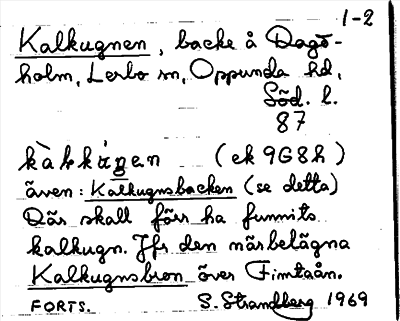 1-2
Kalkugnen, backe å Dagö-
holm, Lerbo sn, Oppunda hd,
Söd. l.
87
kàlkúgen (ek 9G8h)
även: Kalkugnsbacken (se detta)
Där skall förr ha funnits
kalkugn. Jfr den närbelägna
Kalkugnsbron över Fimtaån.
FORTS. S. Strandberg 1969